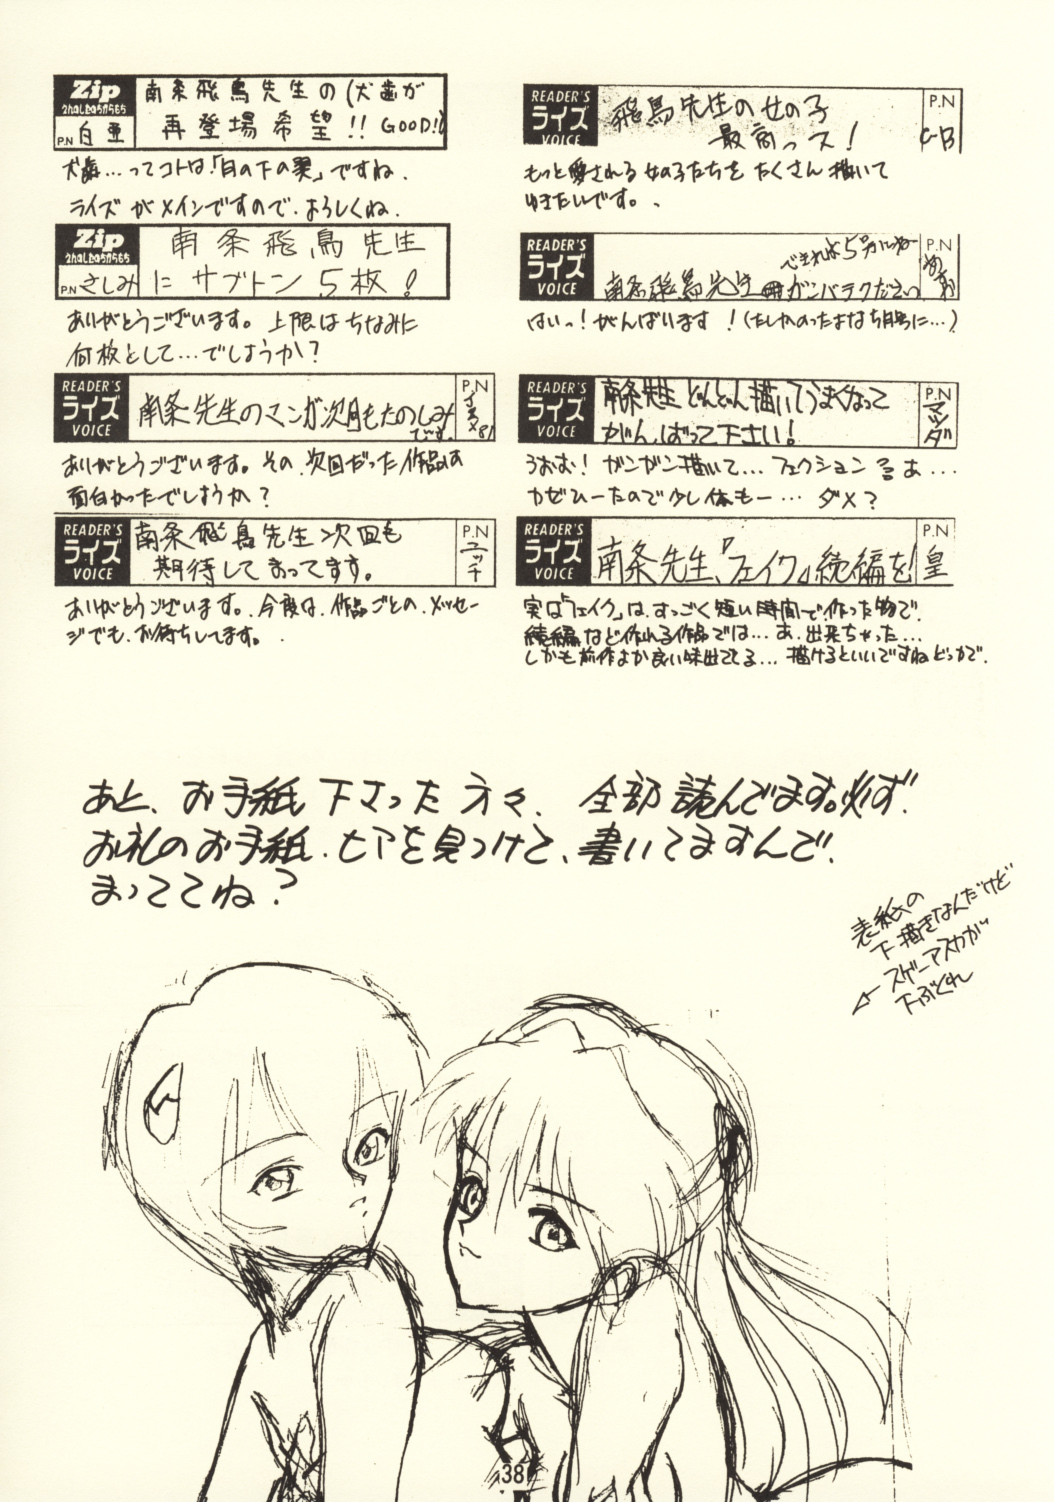 Zip
P.N 白亜
南条飛鳥先生の(犬歯が
再登場希望!! GOOD!!
犬歯…ってコトは「月の下の翼」ですね.
ライズがメインですので.よろしくね.
Zip
P.N さしみ
南条飛鳥先生
にサブトン5枚!
ありがとうございます。上限はちなみに
何枚として…でしょうか?
READER'S
ライズ
VOICE
南条先生のマンガ次回もたのしみ
です。
P.N
ありがとうございます。その、次回だった作品は
面白かったでしょうか?
READER'S
ライズ
VOICE
南条飛鳥先生次回も
期待してまってます。
P.N
ニッチ
ありがとうございます.今度は、作品ごとの、メッセー
ジでも、お待ちしてます。
READER'S
ライズ
VOICE
飛鳥先生の女の子
最高っス!
P.N
C-B
もっと愛される女の子たちをたくさん描いて
ゆきたいです。
READER'S
ライズ
VOICE
南条飛鳥先生 ガンバテクださいっ
P.N
はいっ!がんばります!
READER'S
ライズ
VOICE
南条先生どんどん描いてうまくなって
がんばって下さい!
P.N
マツダ
うおお!ガンガン描いて…
カゼひーたので少し休もー…ダメ?
READER'S
ライズ
VOICE
南条先生、『フェイク』続編を!
P.N
皇
実は「フェイク」は、すっごく短い時間で作った物で、
続編など作れる作品では…あ、出来ちゃった…
しかも前作より良い味出てる…描けるといいですねどっかで.
あと、お手紙下さった方々、全部読んでます。必ず、
お礼のお手紙、ヒマを見つけて、書いてますんで、
まっててね?
表紙の
下描きなんだけど
スゲーアスカが
下ぶくれ
38